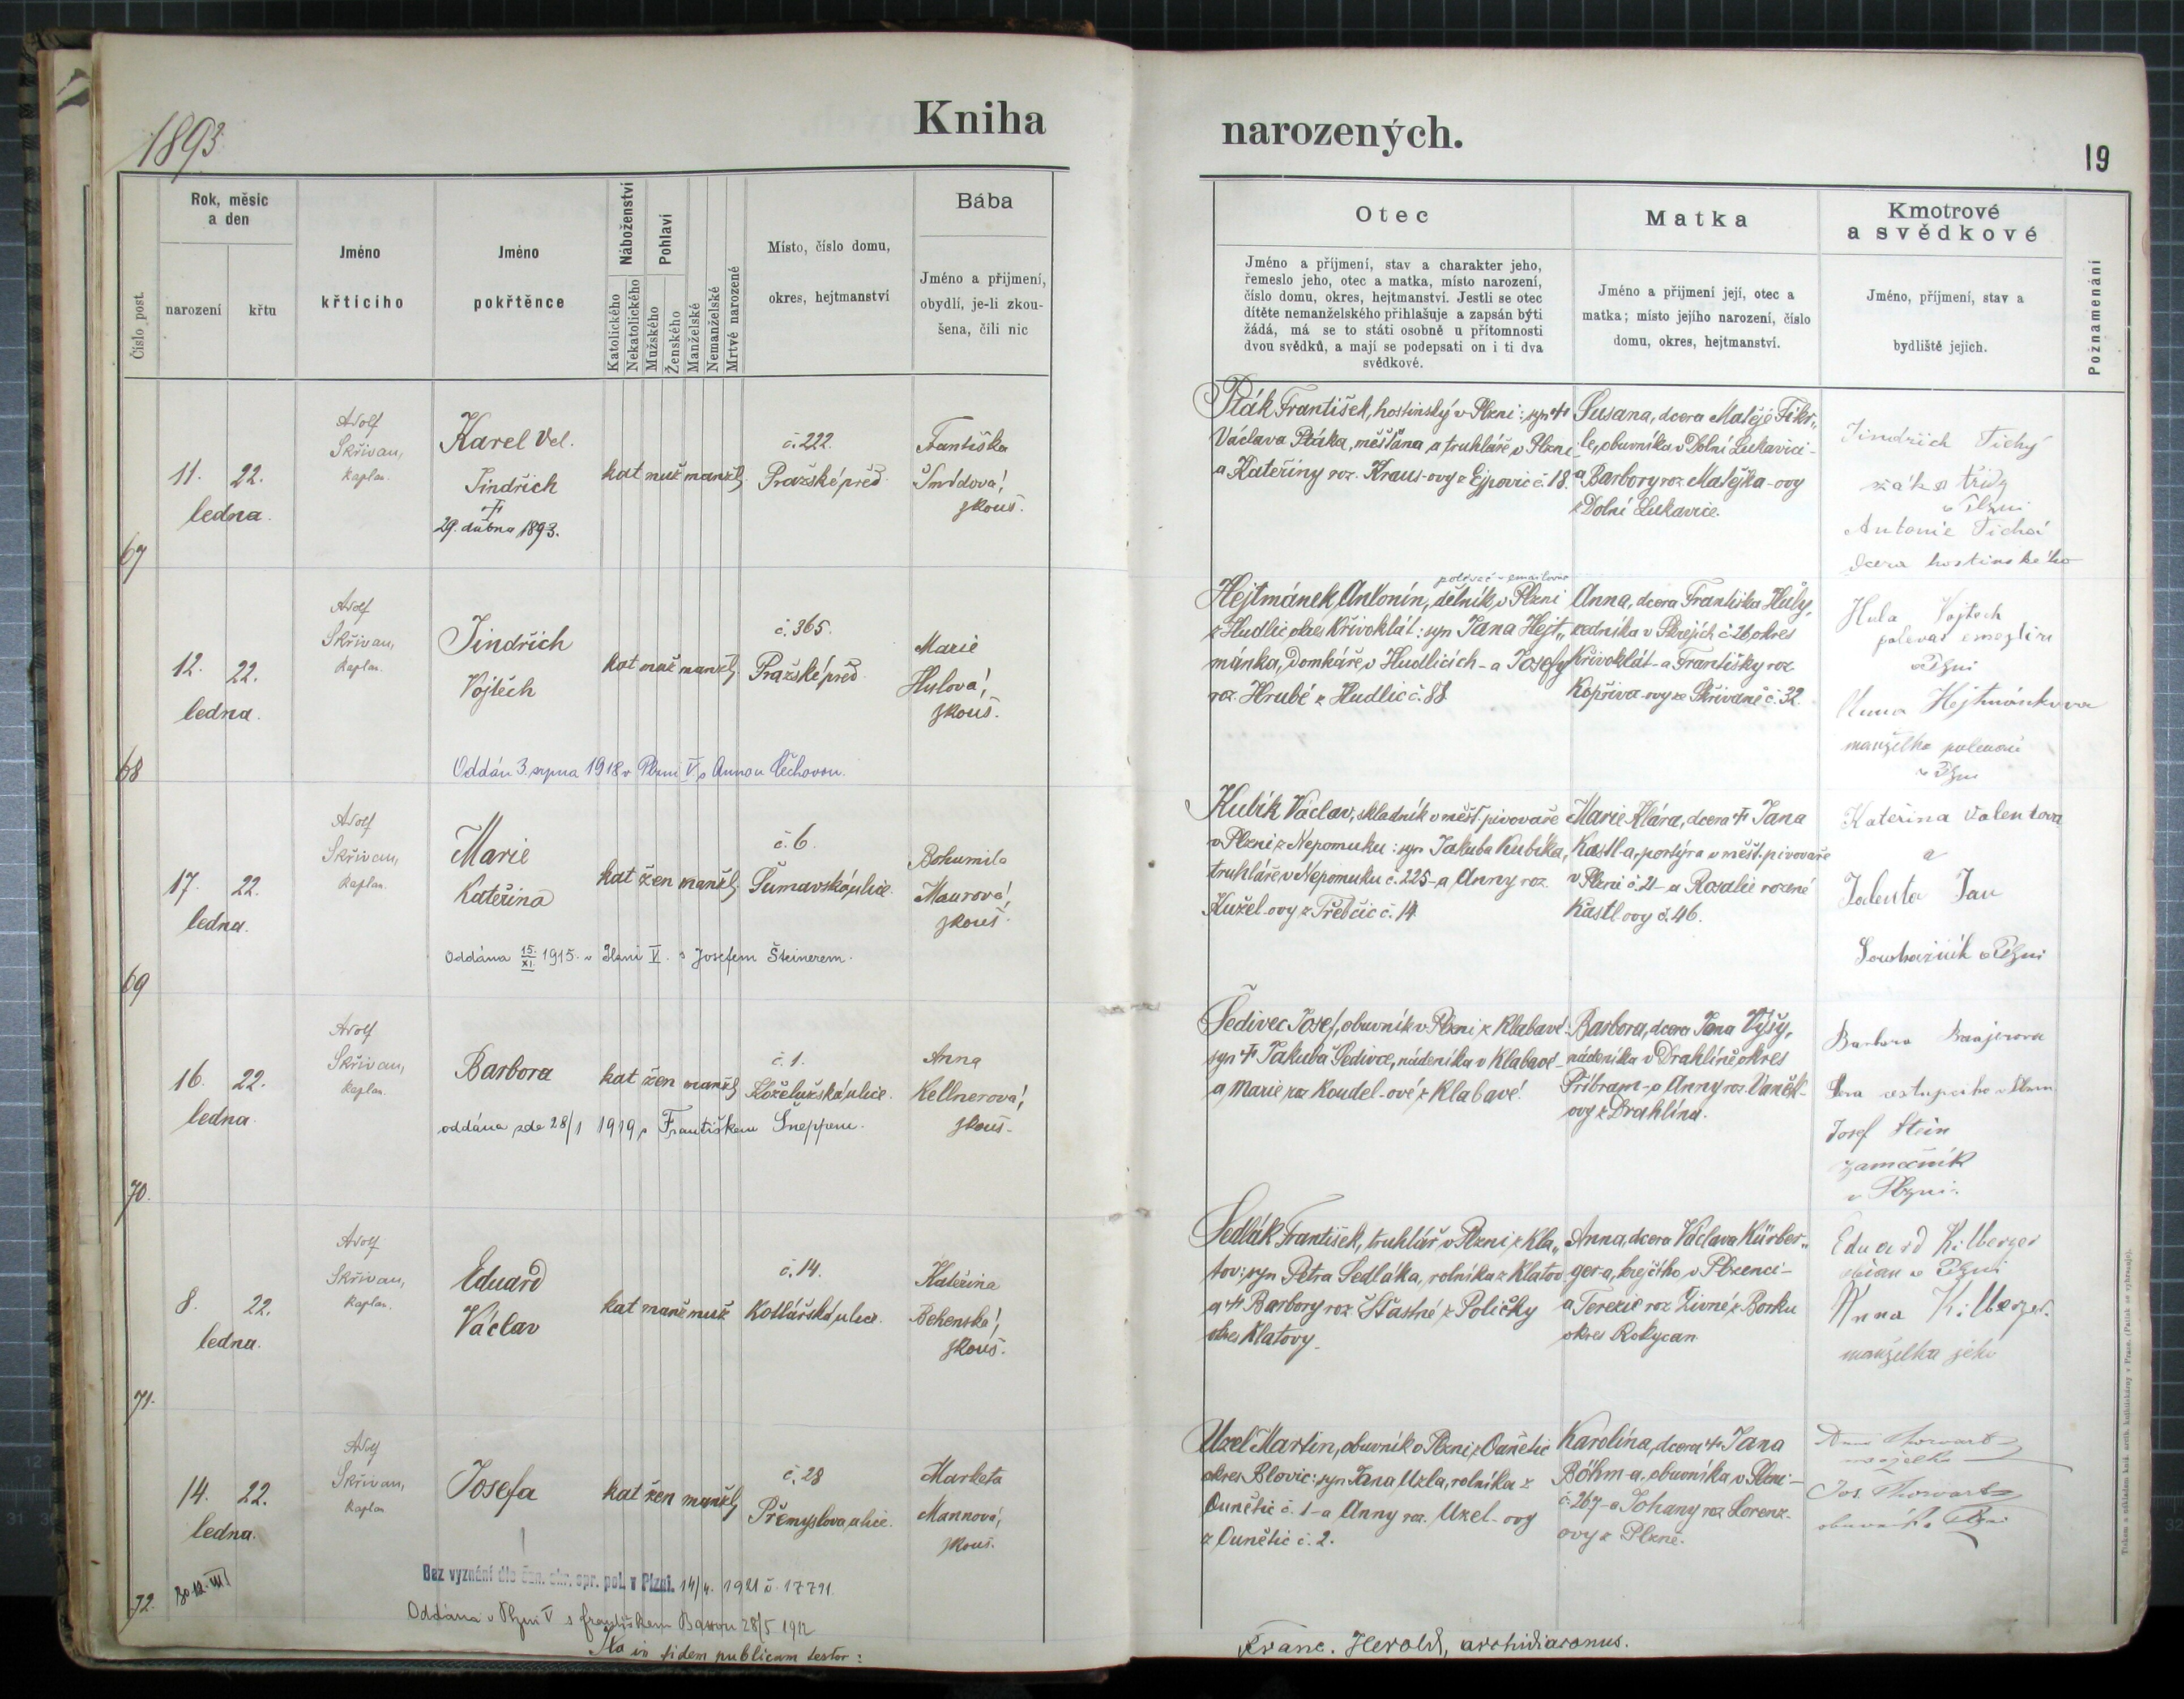 1893
Kniha
narozených.
19
Číslo post.
Rok, měsíc
a den
narození
křtu
Jméno
křtícího
Jméno
pokřtěnce
Náboženství
Katolického
Nekatolického
Pohlaví
Mužského
Ženského
Manželské
Nemanželské
Mrtvé narozené
Místo, číslo domu,
okres, hejtmanství
Bába
Jméno a příjmení,
obydlí, je-li zkou-
šena, čili nic
Otec
Jméno a příjmení, stav a charakter jeho,
řemeslo jeho, otec a matka, místo narození,
číslo domu, okres, hejtmanství. Jestli se otec
dítěte nemanželského přihlašuje a zapsán býti
žádá, má se to státi osobně u přítomnosti
dvou svědků, a mají se podepsati on i ti dva
svědkové.
Matka
Jméno a příjmení její, otec a
matka; místo jejího narození, číslo
domu, okres, hejtmanství.
Kmotrové
a svědkové
Jméno, příjmení, stav a
bydliště jejich.
Poznamenání
67
11. 22.
ledna.
Adolf
Skřivan,
kaplan.
Karel Vel.
Jindřich
†
29. dubna 1893.
kat muž manžel
č. 222.
Pražské před.
Františka
Šmídová,
zkouš.
Pták František, hostinský v Plzni: syn †
Václava Ptáka, měšťana a truhláře v Plzni
a Kateřiny roz. Kraus-ovy z Ejpovic č. 18.
Susana, dcera Matěje Fikr„
le, obuvníka v Dolní Lukavici-
a Barbory roz. Matějka-ovy
z Dolní Lukavice.
Jindřich Tichý
žák
v Plzni
Antonie Tichá
dcera hostinského
68
12. 22.
ledna.
Adolf
Skřivan,
kaplan.
Jindřich
Vojtěch
kat muž manžel
č. 365.
Pražské před.
Marie
Hylová,
zkouš.
Oddán 3. srpna 1918 v Plzni V. s Annou Čechovou.
Hejtmánek Antonín, dělník v Plzni
z Hudlic okres Křivoklát: syn Jana Hejt„
mánka, domkáře v Hudlicích - a Josefy
roz. Hrubé z Hudlic č. 88
Anna, dcera Františka Huly,
zedníka v Skrejích č. 26 okres
Křivoklát - a Františky roz.
Kopřiva-ovy ze Skřivaně č. 32.
Hula Vojtěch
v Plzni
Anna Hejtmánkova
manželka
v Plzni
69
17. 22.
ledna.
Adolf
Skřivan,
kaplan.
Marie
Kateřina
kat žen manžel
č. 6.
Šumavská ulice.
Bohumila
Maurová,
zkouš.
Oddána 15./XI. 1915. v Plzni V. s Josefem Šteinerem.
Kubík Václav, skladník v měšť. pivovaře
v Plzni z Nepomuku: syn Jakuba Kubíka,
truhláře v Nepomuku č. 225 - a Anny roz.
Kužel-ovy z Třebčic č. 14.
Marie Klára, dcera † Jana
Kastl-a, portýra v měšť. pivovaře
v Plzni č. 21 - a Rozalie rozené
Kastlovy č. 46.
Kateřina Valentova
a
Valenta Jan
v Plzni
70.
16. 22.
ledna.
Adolf
Skřivan,
kaplan.
Barbora
kat žen manžel
č. 1.
Koželužská ulice.
Anna
Kellnerová,
zkouš.
oddána zde 28/1 1919 s Františkem Šneppem.
Šedivec Josef, obuvník v Plzni z Klabavé-
syn † Jakuba Šedivce, nádeníka v Klabavě-
a Marie roz. Koudel-ové z Klabavé.
Barbora, dcera Jana Vyšy,
nádeníka v Drahlíně okres
Příbram - a Anny roz. Vaněk-
ovy z Drahlína.
Barbora
Josef Stein
zámečník
v Plzni.
71.
8. 22.
ledna.
Adolf
Skřivan,
kaplan.
Eduard
Václav
kat manž muž
č. 14.
Kotlářská ulice.
Kateřina
Behenská,
zkouš.
Sedlák František, truhlář v Plzni z Kla„
tov: syn Petra Sedláka, rolníka z Klatov
a † Barbory roz. Šťastné z Poličky
okres Klatovy.
Anna, dcera Václava Kürber„
ger-a, krejčího v Plzenci-
a Terezie roz. Živné z Borku
okres Rokycan.
Eduard Kilberger
občan v Plzni
Anna Kilberger.
manželka jeho
72.
14. 22.
ledna.
Adolf
Skřivan,
kaplan
Josefa
kat žen manžel
č. 28
Přemyslova ulice.
Marketa
Mannová,
zkouš.
Bez vyznání dle ozn. okr. spr. pol. v Plzni. 14/4. 1921 č. 17791.
Oddána v Plzni V s Františkem 28/5 1912
Uzel Martin, obuvník v Plzni z Ounětic
okres Blovic: syn Jana Uzla, rolníka z
Ounětic č. 1 - a Anny roz. Uzel-ovy
z Ounětic č. 2.
Karolína, dcera † Jana
Böhm-a, obuvníka v Plzni-
č. 267 - a Johany roz. Lorenz-
ovy z Plzně.
Jos. Thorwart
Ita in fidem publicam testor:
Franc. Herold, archidiaconus.